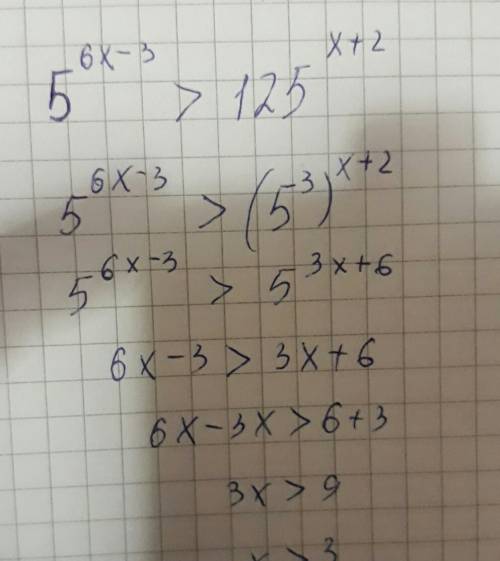 5^{6x-3} > 125^{x+2}
5^{6x-3} > (5^3)^{x+2}
5^{6x-3} > 5^{3x+6}
6x-3 > 3x+6
6x-3x > 6+3
3x > 9
x > 3